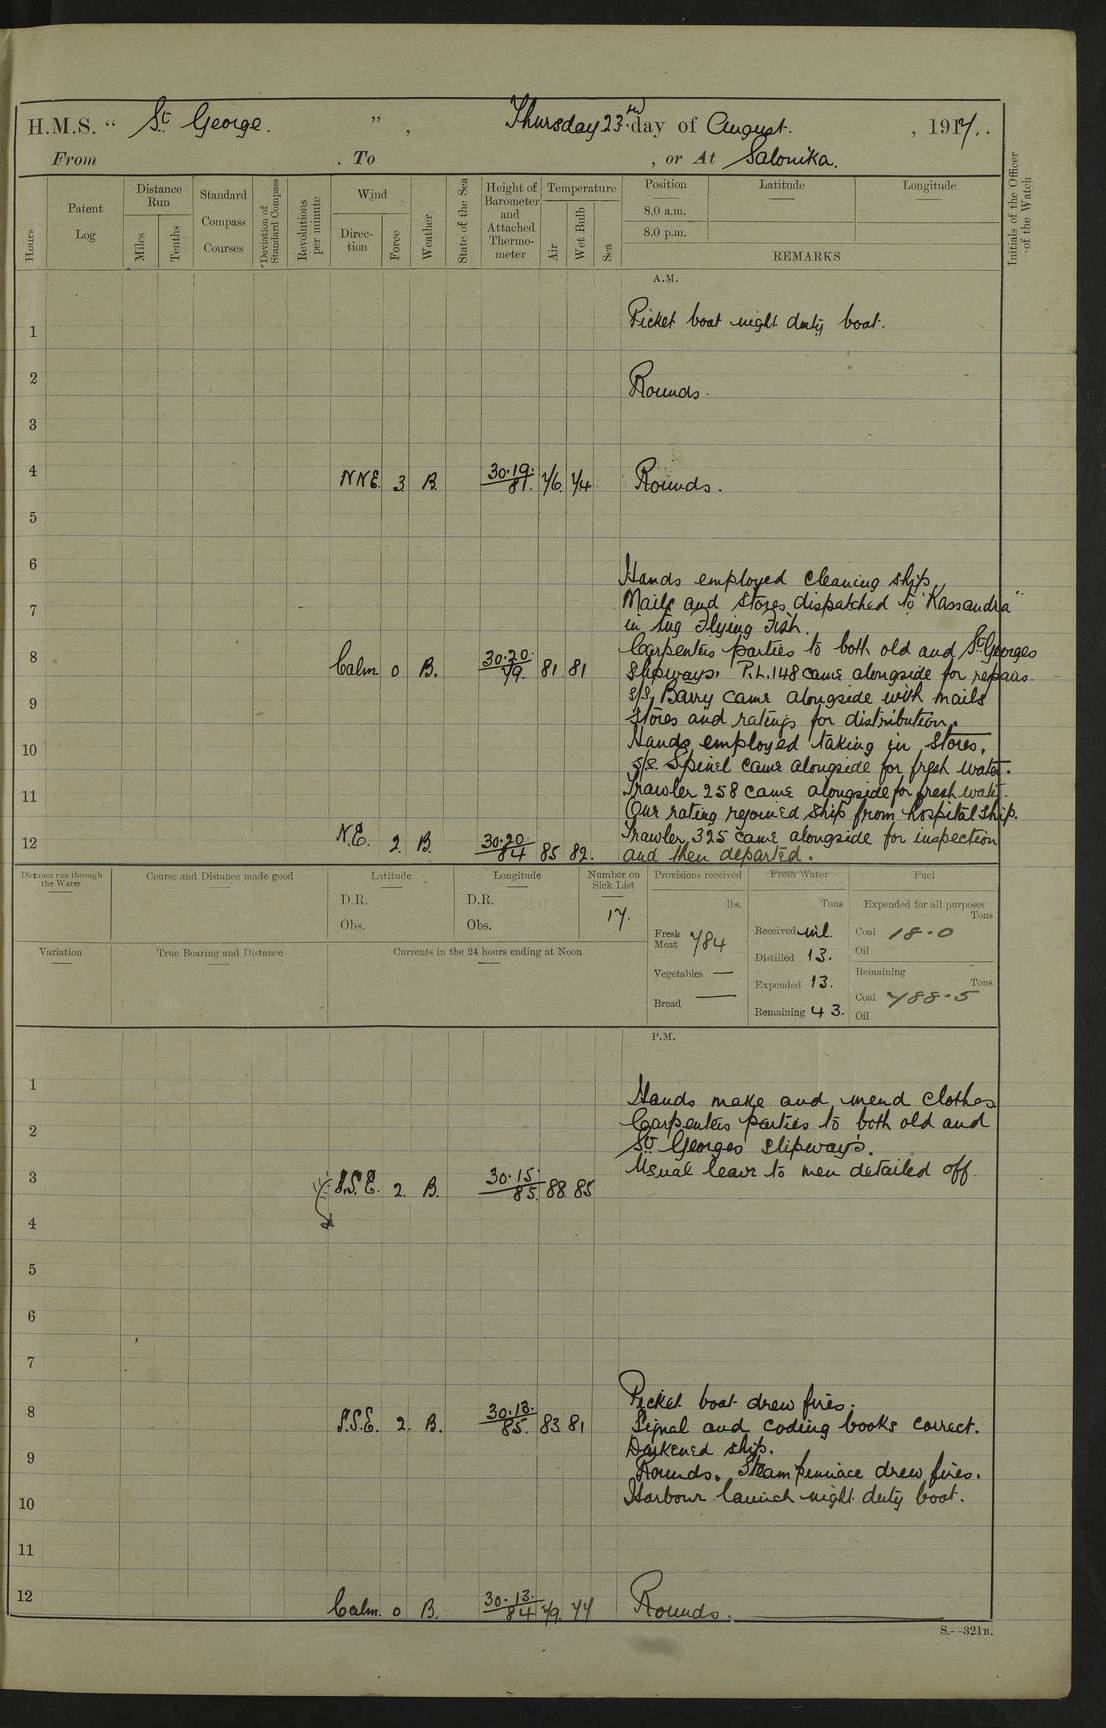 H.M.S. “ St George. ” , Thursday 23rd day of August. , 1917.
From . To , or At Salonika.
Hours
Patent Log
Distance Run
Miles
Tenths
Standard Compass Courses
Deviation of Standard Compass
Revolutions per minute
Wind
Direction
Force
Weather
State of the Sea
Height of Barometer and Attached Thermometer
Temperature
Air
Wet Bulb
Sea
Position
8.0 a.m.
8.0 p.m.
Latitude
Longitude
REMARKS
Initials of the Officer of the Watch
A.M.
1 Picket boat night duty boat.
2 Rounds.
3
4 NNE. 3. B. 30.19. 81. 76. 74 Rounds.
5
6 Hands employed cleaning ship.
7 Mails and Stores dispatched to "Kassandra"
in tug Flying Fish.
8 Carpenters parties to both old and St Georges
Calm 0 B. 30.20. 79. 81 81 Slipways. P.L.148 came alongside for repairs.
9 S/S. Barry came alongside with mails
Stores and ratings for distribution.
10 Hands employed taking in Stores.
S/S. Spinel came alongside for fresh water.
11 Trawler 258 came alongside for fresh water.
One rating rejoined Ship from hospital Ship.
12 N.E. 2. B. 30.20. 84 85 82. Trawler 325 came alongside for inspection
and then departed.
Distance run through the Water
Course and Distance made good
Latitude
D.R.
Obs.
Longitude
D.R.
Obs.
Number on Sick List
17.
Provisions received
lbs.
Fresh Meat 784
Vegetables —
Bread —
Fresh Water
Tons
Received nil.
Distilled 13.
Expended 13.
Remaining 43.
Fuel
Expended for all purposes
Tons
Coal 18.0
Oil
Remaining
Tons
Coal 788.5
Oil
Variation
True Bearing and Distance
Currents in the 24 hours ending at Noon
P.M.
1 Hands make and mend clothes
2 Carpenters parties to both old and
St Georges slipways.
3 Usual leave to men detailed off
S.S.E. 2. B. 30.15. 85. 88 85
4
5
6
7
8 Picket boat drew fires.
S.S.E. 2. B. 30.13. 85. 83 81 Signal and coding books correct.
Darkened ship.
9 Rounds. Steam pinnace drew fires.
10 Harbour launch night duty boat.
11
12 Calm. 0 B. 30.13. 84 79. 77 Rounds.
S.--321B.